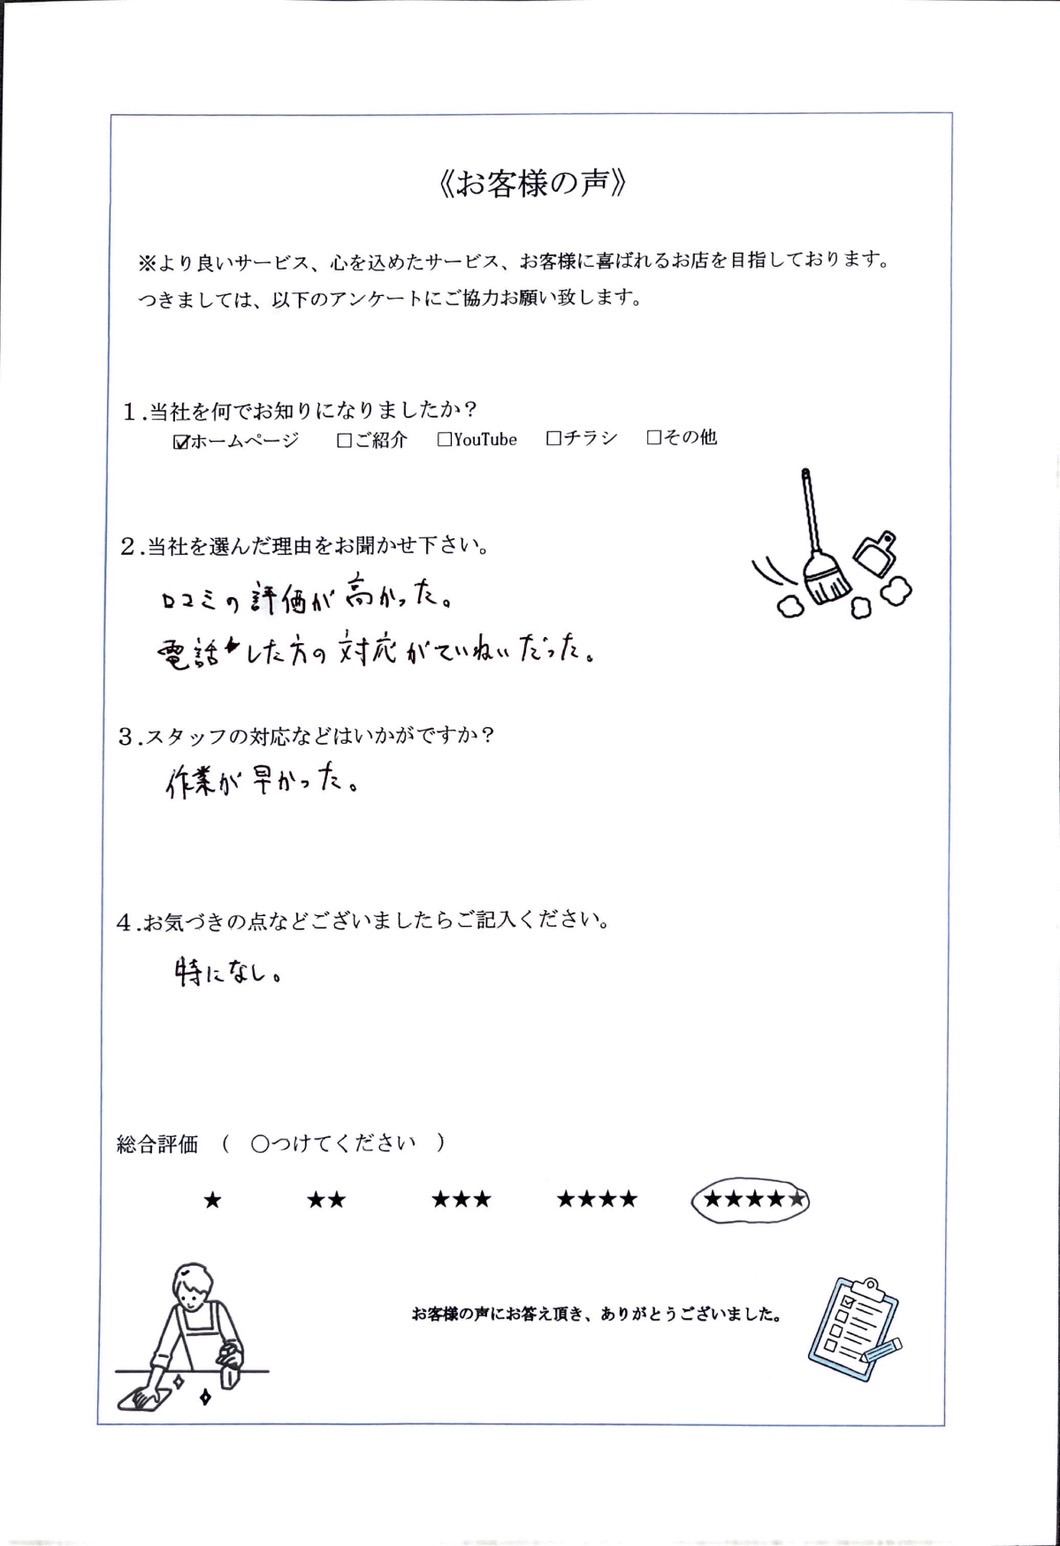 《お客様の声》
※より良いサービス、心を込めたサービス、お客様に喜ばれるお店を目指しております。
つきましては、以下のアンケートにご協力お願い致します。
１.当社を何でお知りになりましたか？
☑ホームページ　□ご紹介　□YouTube　□チラシ　□その他
２.当社を選んだ理由をお聞かせ下さい。
口コミの評価が高かった。
電話した方の対応がていねいだった。
３.スタッフの対応などはいかがですか？
作業が早かった。
４.お気づきの点などございましたらご記入ください。
特になし。
総合評価　（　〇つけてください　）
★　★★　★★★　★★★★　★★★★★
お客様の声にお答え頂き、ありがとうございました。